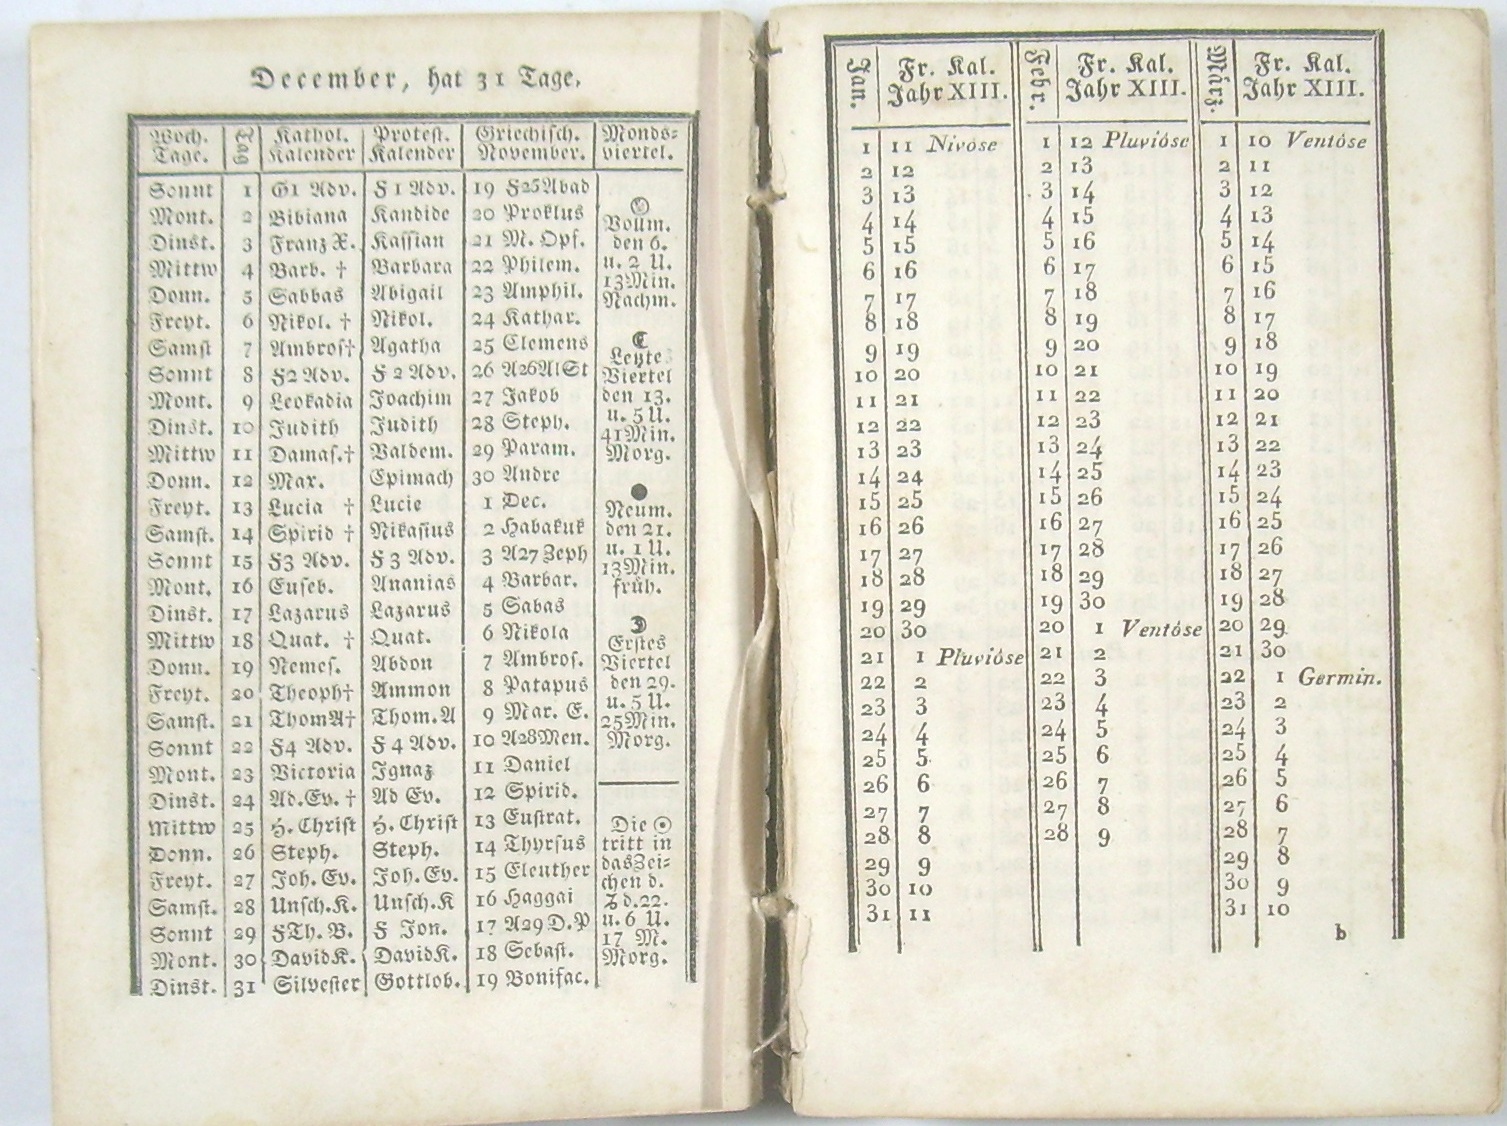 December, hat 31 Tage.
Woch. Tage. | Tag | Kathol. Kalender | Protest. Kalender | Griechisch. November. | Monds-viertel.
Sonnt 1 G1 Adv. F 1 Adv. 19 F25Abad
Mont. 2 Bibiana Kandide 20 Proklus
Dinst. 3 Franz X. Kassian 21 M. Opf.
Mittw 4 Barb. † Barbara 22 Philem.
Donn. 5 Sabbas Abigail 23 Amphil.
Freyt. 6 Nikol. † Nikol. 24 Kathar.
Samst 7 Ambros† Agatha 25 Clemens
Sonnt 8 F2 Adv. F 2 Adv. 26 A26AlSt
Mont. 9 Leokadia Joachim 27 Jakob
Dinst. 10 Judith Judith 28 Steph.
Mittw 11 Damas.† Valdem. 29 Param.
Donn. 12 Max. Epimach 30 Andre
Freyt. 13 Lucia † Lucie 1 Dec.
Samst. 14 Spirid † Nikasius 2 Habakuk
Sonnt 15 F3 Adv. F 3 Adv. 3 A27 Zeph
Mont. 16 Euseb. Ananias 4 Barbar.
Dinst. 17 Lazarus Lazarus 5 Sabas
Mittw 18 Quat. † Quat. 6 Nikola
Donn. 19 Nemes. Abdon 7 Ambros.
Freyt. 20 Theoph† Ammon 8 Patapus
Samst. 21 ThomA† Thom.A 9 Mar. E.
Sonnt 22 F4 Adv. F 4 Adv. 10 A28Men.
Mont. 23 Victoria Ignaz 11 Daniel
Dinst. 24 Ad.Ev. † Ad Ev. 12 Spirid.
Mittw 25 H. Christ H. Christ 13 Eustrat.
Donn. 26 Steph. Steph. 14 Thyrsus
Freyt. 27 Joh. Ev. Joh. Ev. 15 Eleuther
Samst. 28 Unsch.K. Unsch.K 16 Haggai
Sonnt 29 FTh. B. F Jon. 17 A29 D.P
Mont. 30 DavidK. DavidK. 18 Sebast.
Dinst. 31 Silvester Gottlob. 19 Bonifac.
Vollm.
den 6.
u. 2 U.
13Min.
Nachm.
☾
Letzte
Viertel
den 13.
u. 5 U.
41Min.
Morg.
●
Neum.
den 21.
u. 1 U.
13Min.
früh.
☽
Erstes
Viertel
den 29.
u. 5 U.
25Min.
Morg.
Die ☉
tritt in
das Zei-
chen d.
♑ d.22.
u. 6 U.
17 M.
Morg.
Jan. | Fr. Kal. Jahr XIII. | Febr. | Fr. Kal. Jahr XIII. | März. | Fr. Kal. Jahr XIII.
1 11 Nivôse 1 12 Pluviôse 1 10 Ventôse
2 12 2 13 2 11
3 13 3 14 3 12
4 14 4 15 4 13
5 15 5 16 5 14
6 16 6 17 6 15
7 17 7 18 7 16
8 18 8 19 8 17
9 19 9 20 9 18
10 20 10 21 10 19
11 21 11 22 11 20
12 22 12 23 12 21
13 23 13 24 13 22
14 24 14 25 14 23
15 25 15 26 15 24
16 26 16 27 16 25
17 27 17 28 17 26
18 28 18 29 18 27
19 29 19 30 19 28
20 30 20 1 Ventôse 20 29
21 1 Pluviôse 21 2 21 30
22 2 22 3 22 1 Germin.
23 3 23 4 23 2
24 4 24 5 24 3
25 5 25 6 25 4
26 6 26 7 26 5
27 7 27 8 27 6
28 8 28 9 28 7
29 9 29 8
30 10 30 9
31 11 31 10
b